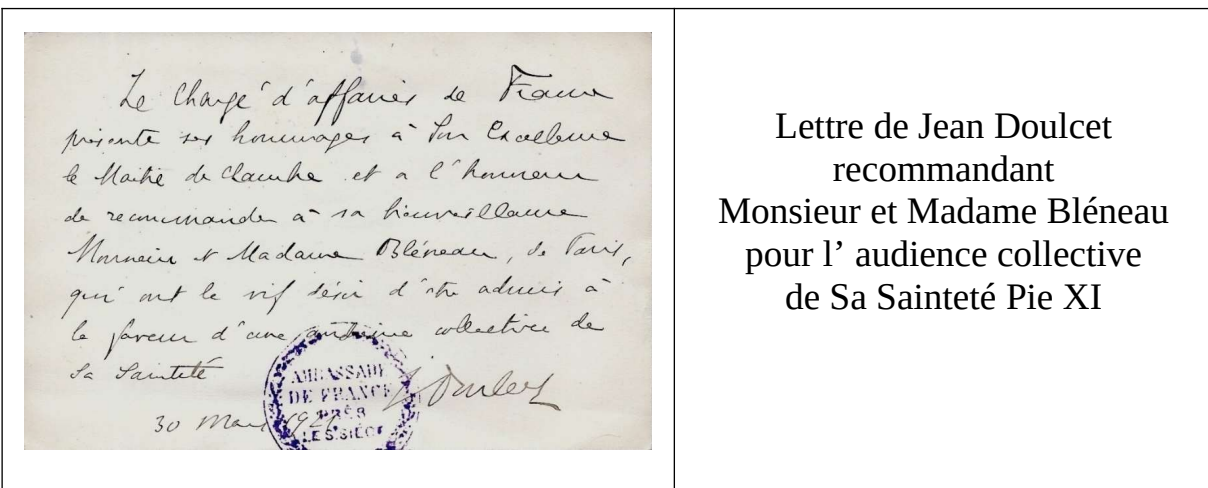 Le Chargé d'affaires de France
présente ses hommages à Son Excellence
le Maître de Chambre et a l'honneur
de recommander à sa bienveillance
Monsieur et Madame Bléneau, de Paris,
qui ont le vif désir d'être admis à
la faveur d'une audience collective de
Sa Sainteté
J Doulcet
30 Mars
AMBASSADE
DE FRANCE
PRÈS
LE S. SIÈGE
Lettre de Jean Doulcet
recommandant
Monsieur et Madame Bléneau
pour l' audience collective
de Sa Sainteté Pie XI